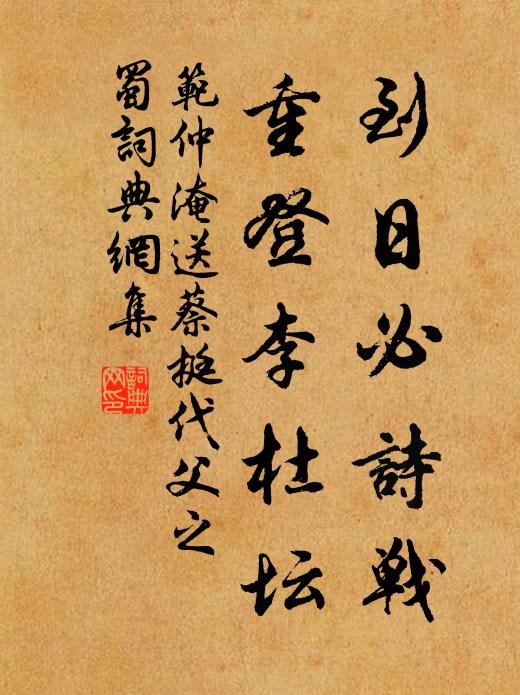 到日必詩戦
重登李杜坛
範仲淹送蔡挺代父之
蜀詞典網集
詞典网印